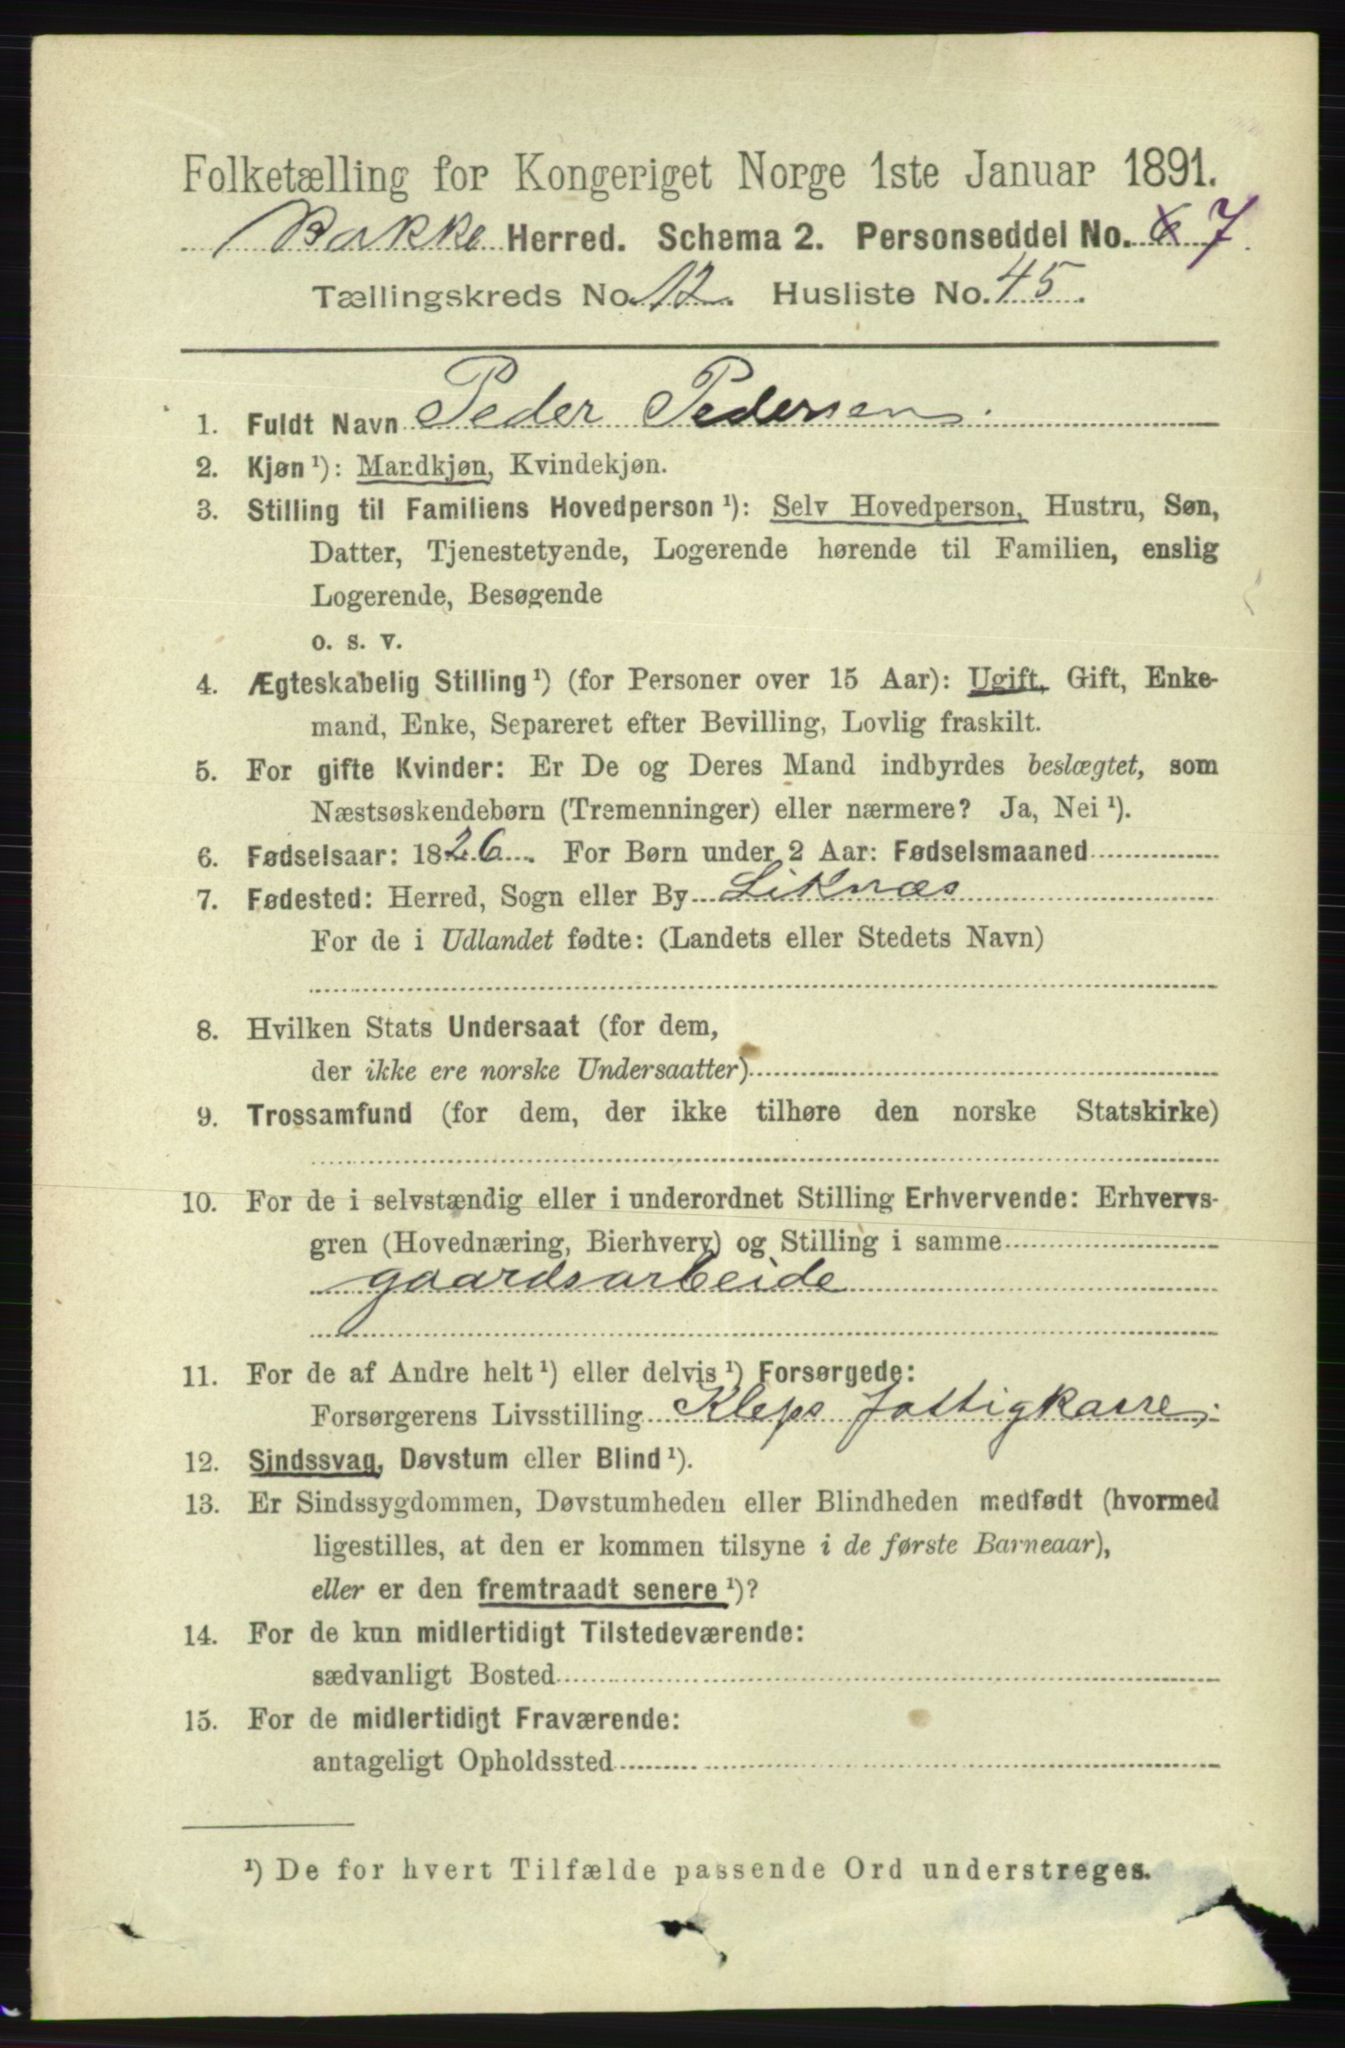 Folketælling for Kongeriget Norge 1ste Januar 1891.
Bakke Herred. Schema 2. Personseddel No. 6 7.
Tællingskreds No. 12. Husliste No. 45.
1. Fuldt Navn Peder Pedersen.
2. Kjøn¹): Mandkjøn, Kvindekjøn.
3. Stilling til Familiens Hovedperson¹): Selv Hovedperson, Hustru, Søn,
Datter, Tjenestetyende, Logerende hørende til Familien, enslig
Logerende, Besøgende
o. s. v.
4. Ægteskabelig Stilling¹) (for Personer over 15 Aar): Ugift, Gift, Enke-
mand, Enke, Separeret efter Bevilling, Lovlig fraskilt.
5. For gifte Kvinder: Er De og Deres Mand indbyrdes beslægtet, som
Næstsøskendebørn (Tremenninger) eller nærmere? Ja, Nei¹).
6. Fødselsaar: 1826. For Børn under 2 Aar: Fødselsmaaned
7. Fødested: Herred, Sogn eller By Liknæs
For de i Udlandet fødte: (Landets eller Stedets Navn)
8. Hvilken Stats Undersaat (for dem,
der ikke ere norske Undersaatter)
9. Trossamfund (for dem, der ikke tilhøre den norske Statskirke)
10. For de i selvstændig eller i underordnet Stilling Erhvervende: Erhvervs-
gren (Hovednæring, Bierhverv) og Stilling i samme
gaardsarbeide
11. For de af Andre helt¹) eller delvis¹) Forsørgede:
Forsørgerens Livsstilling Kleps fattigkasse.
12. Sindssvag, Døvstum eller Blind¹).
13. Er Sindssygdommen, Døvstumheden eller Blindheden medfødt (hvormed
ligestilles, at den er kommen tilsyne i de første Barneaar),
eller er den fremtraadt senere¹)?
14. For de kun midlertidigt Tilstedeværende:
sædvanligt Bosted
15. For de midlertidigt Fraværende:
antageligt Opholdssted
¹) De for hvert Tilfælde passende Ord understreges.